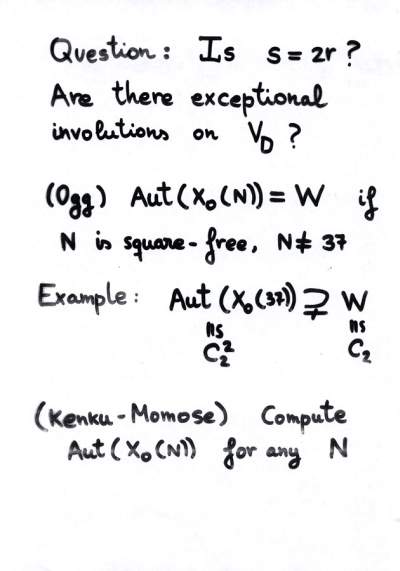 Question: Is s = 2r ?
Are there exceptional
involutions on V_D ?
(Ogg) Aut(X_0(N)) = W if
N is square-free, N ≠ 37
Example: Aut(X_0(37)) ⊋ W
≅ ≅
C_2^2 C_2
(Kenku-Momose) Compute
Aut(X_0(N)) for any N